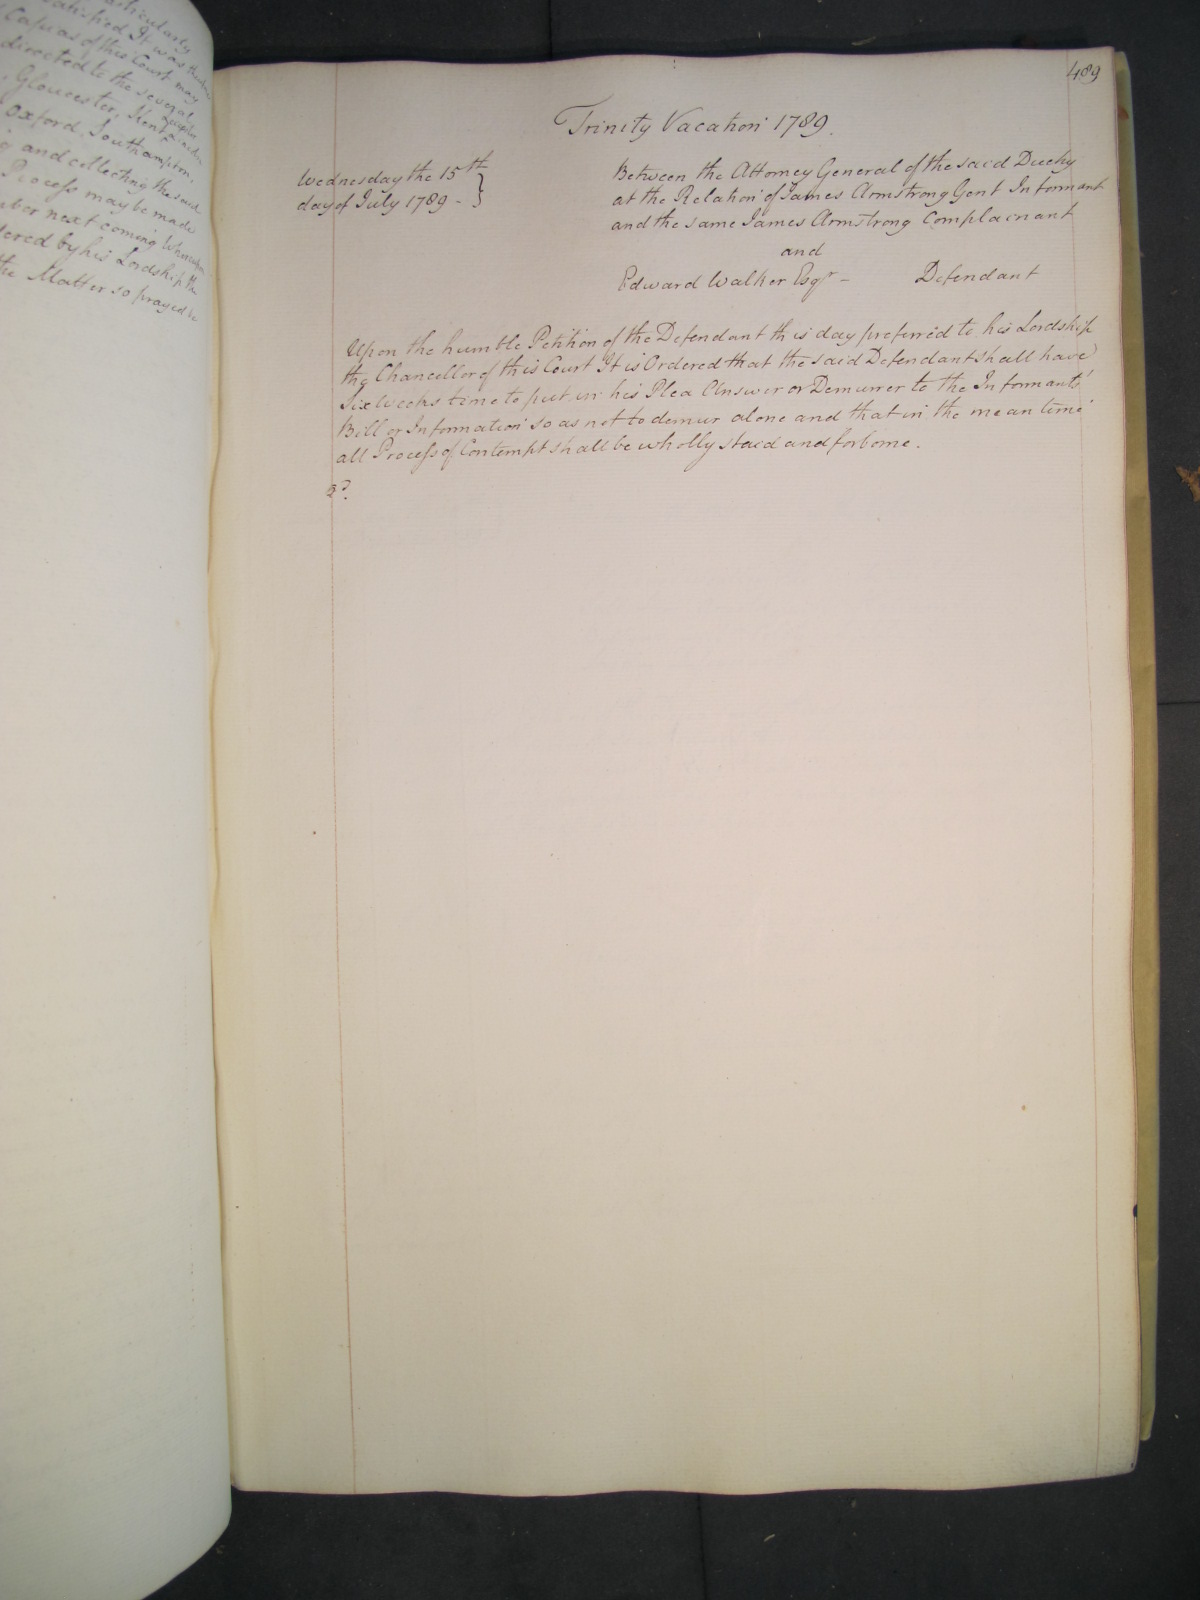 articularly
satisfied It was
Capias of this Court may
directed to the several
Gloucester, Kent Leicester
Oxford, Southampton,
and collecting the said
Process may be made
next coming Whereupon
ered by his Lordship the
the Matter so prayed be
489
Trinity Vacation 1789.
Wednesday the 15th
day of July 1789 -
Between the Attorney General of the said Duchy
at the Relation of James Armstrong Gent Informant
and the same James Armstrong Complainant
and
Edward Walker Esqr - Defendant
Upon the humble Petition of the Defendant this day preferred to his Lordship
the Chancellor of this Court It is Ordered that the said Defendant shall have
Six Weeks time to put in his Plea Answer or Demurrer to the Informants'
Bill or Information so as not to demur alone and that in the mean time
all Process of Contempt shall be wholly staid and forborne.